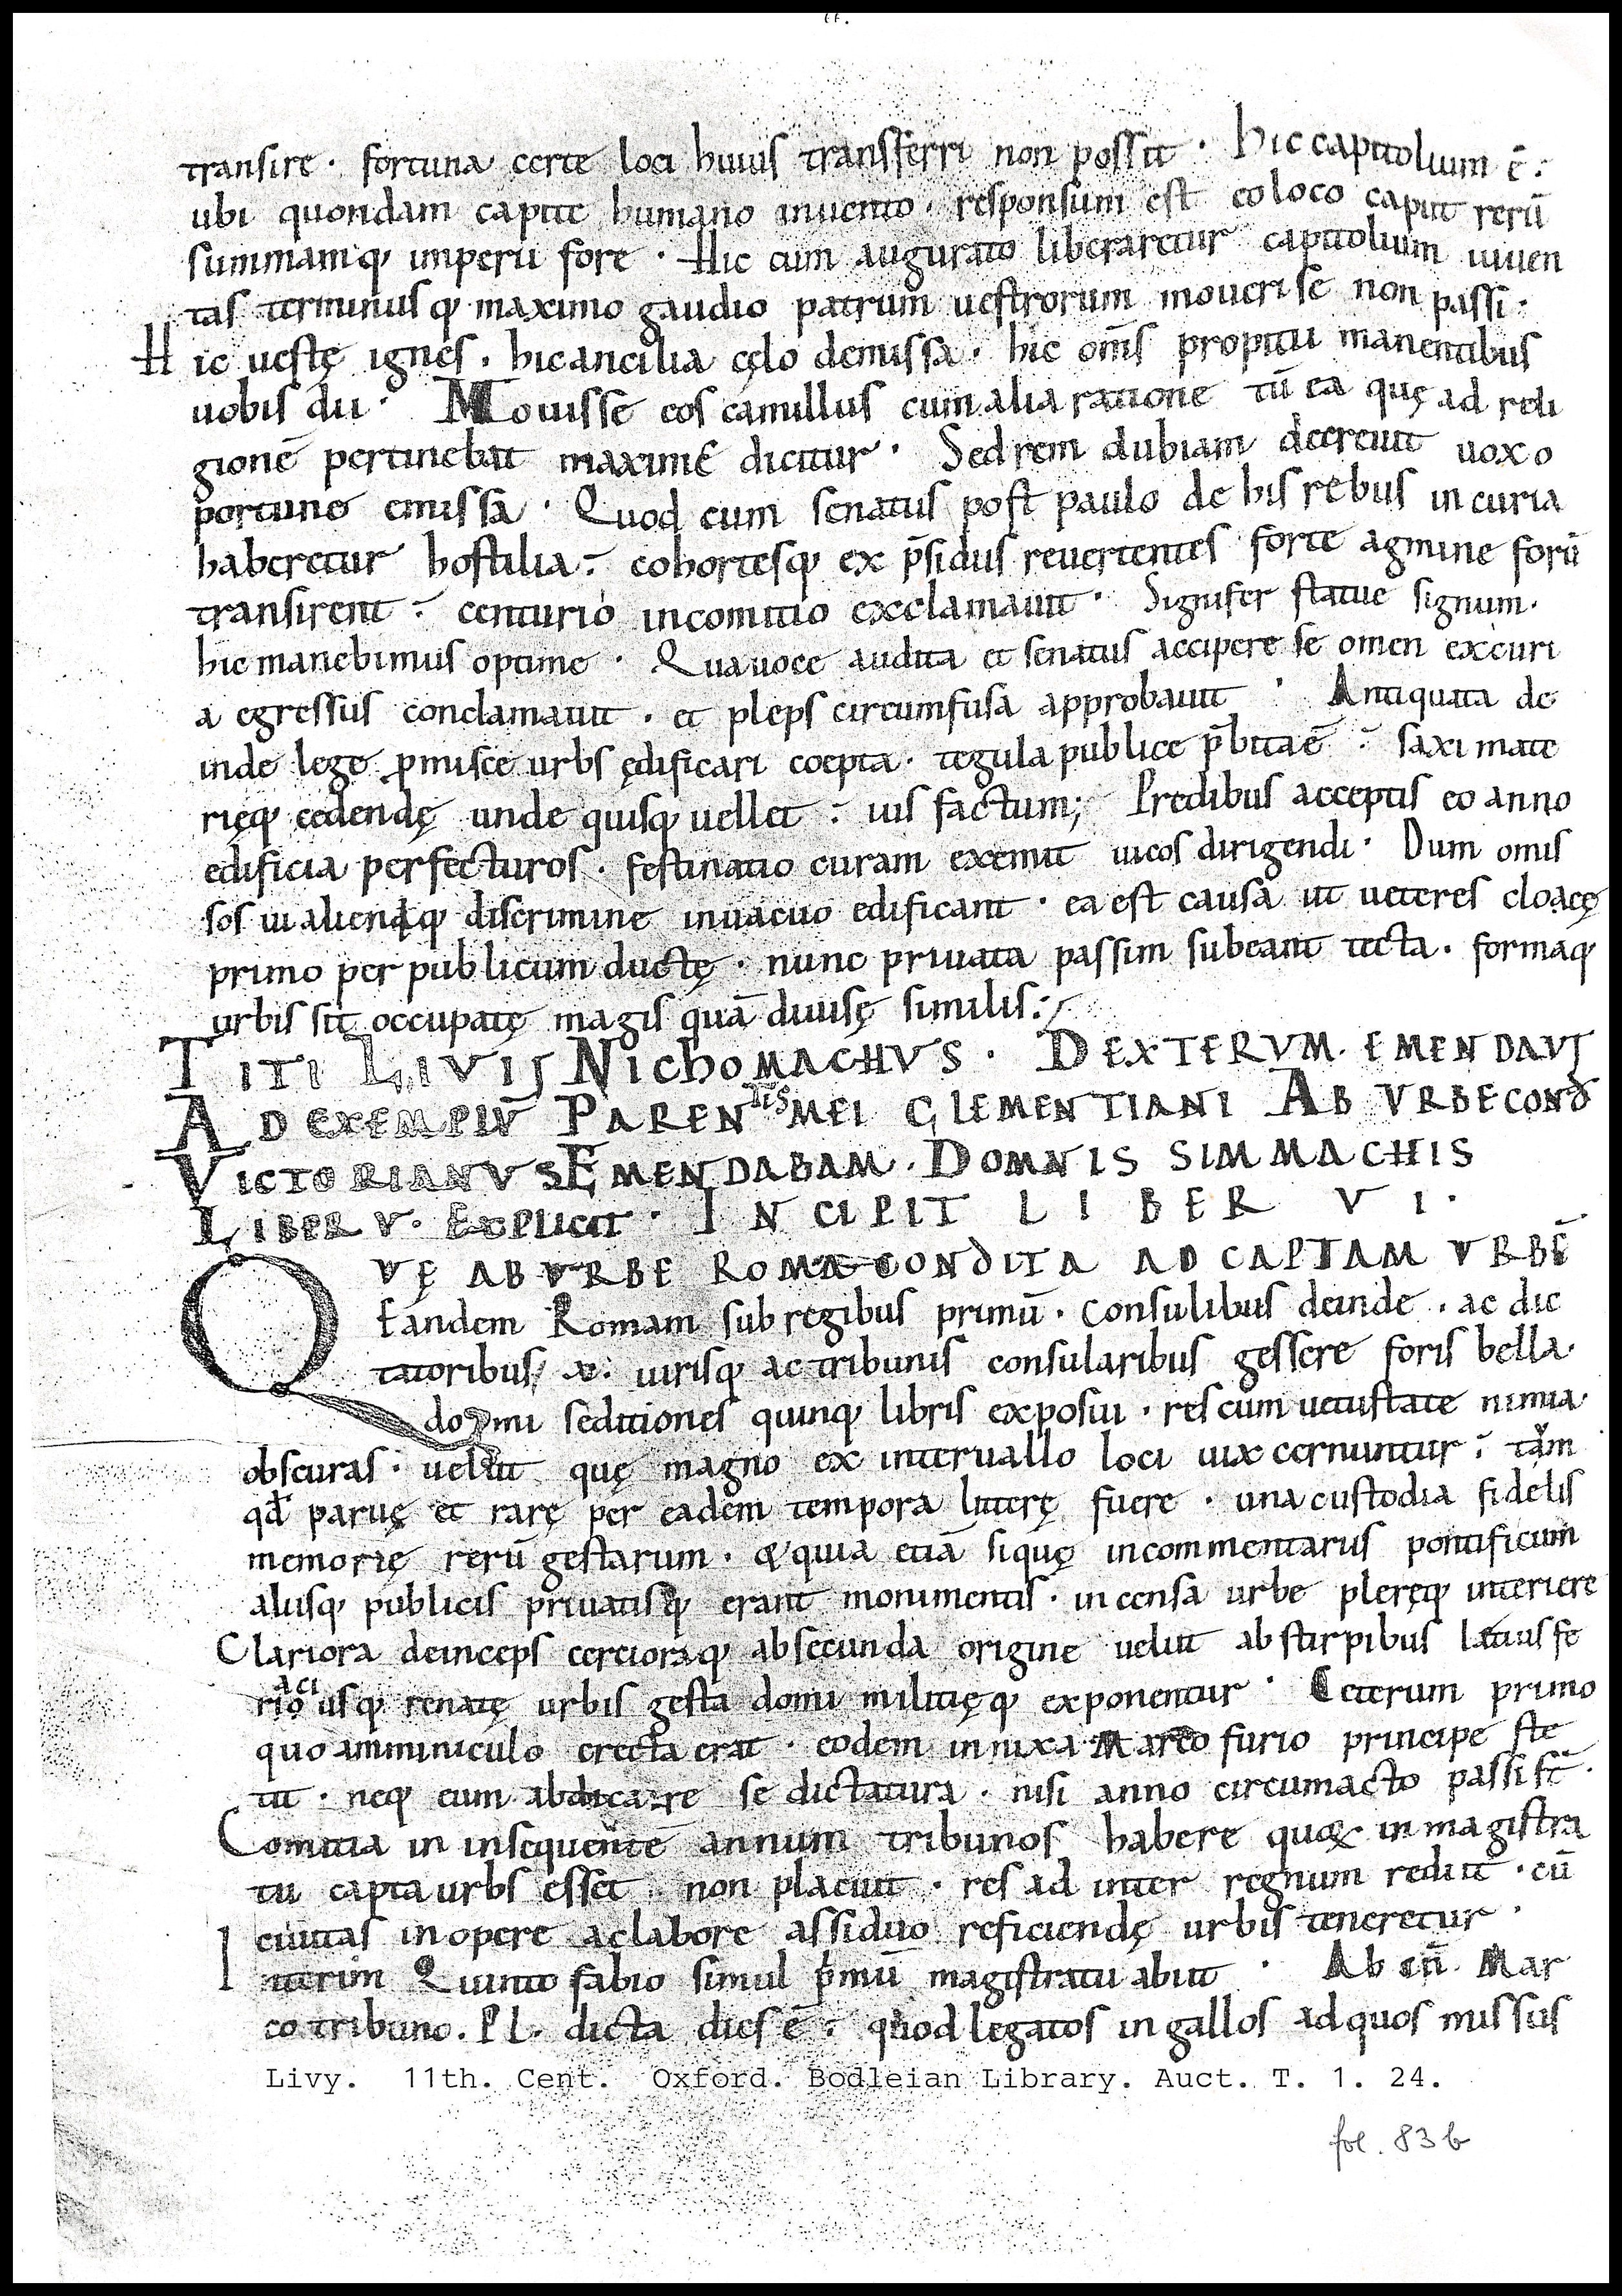 transire · fortuna certe loci huius transferri non possit · hic capitolium ē ·
ubi quondam capite humano inuento · responsum est eo loco caput rerū
summamq; imperii fore · Hic cum augurato liberaretur capitolium iuuen
tas terminusq; maximo gaudio patrum uestrorum moueri se non passi ·
Hic uestę ignes · hic ancilia cęlo demissa · hic om̄s propitii manentibus
uobis dii · Mouisse eos camillus cum alia ratione tū ea quę ad reli
gionē pertinebat maxime dicitur · Sed rem dubiam decreuit uox o
portuno emissa · Quod cum senatus post paulo de his rebus in curia
haberetur hostilia · cohortesq; ex p̄sidiis reuertentes forte agmine forū
transirent · centurio in comitio exclamauit · Signifer statue signum ·
hic manebimus optime · Qua uoce audita et senatus accipere se omen ex curi
a egressus conclamauit · et pleps circumfusa approbauit · Antiquata de
inde lege p̱misce urbs ędificari coepta · tegula publice p̄bita ē · saxi mate
rięq; cedendę unde quisq; uellet · ius factum; Predibus acceptis eo anno
edificia perfecturos · festinatio curam exemit uicos dirigendi · Dum omis
so sui alieniq; discrimine in uacuo edificant · ea est causa ut ueteres cloacę
primo per publicum ductę · nunc priuata passim subeant tecta · formaq;
urbis sit occupatę magis quā diuisę similis :
TITI LIVIJ NICHOMACHVS · DEXTERVM · EMENDAVJ
AD EXEMPLV̄ PARENTIS MEI CLEMENTIANI AB VRBE COND
VICTORIANVS EMENDABAM · DOMNIS SIMMACHIS
LIBER V · EXPLICIT · INCIPIT LIBER VI ·
QVĘ AB VRBE ROMA CONDITA AD CAPTAM VRBĒ
Eandem Romam sub regibus primū · consulibus deinde · ac dic
tatoribus · x · uirisq; ac tribunis consularibus gessere foris bella ·
domi seditiones quinq; libris exposui · res cum uetustate nimia
obscuras · uelut quę magno ex interuallo loci uix cernuntur · tam
qd̄ paruę et rarę per eadem tempora litterę fuere · una custodia fidelis
memorię rerū gestarum · & quia etiā si quę in commentariis pontificum
aliisq; publicis priuatisq; erant monimentis · incensa urbe pleręq; interiere
Clariora deinceps certioraq; ab secunda origine uelut ab stirpibus lętius fe
racioriusq; renatę urbis gesta domi militięq; exponentur · Ceterum primo
quo amminiculo erecta erat · eodem innixa Marco furio principe ste
tit · neq; eum abdicare se dictatura · nisi anno circumacto passi st̄ ·
Comitia in insequentē annum tribunos habere quoꝝ in magistra
tu capta urbs esset non placuit · res ad inter regnum rediit · cū
ciuitas in opere ac labore assiduo reficiendę urbis teneretur ·
Interim Quinto fabio simul p̄mū magistratu abiit · Ab cn̄ · Mar
co tribuno · PL · dicta dies ē · quod legatos in gallos ad quos missus
Livy. 11th. Cent. Oxford. Bodleian Library. Auct. T. 1. 24.
fol. 83 b